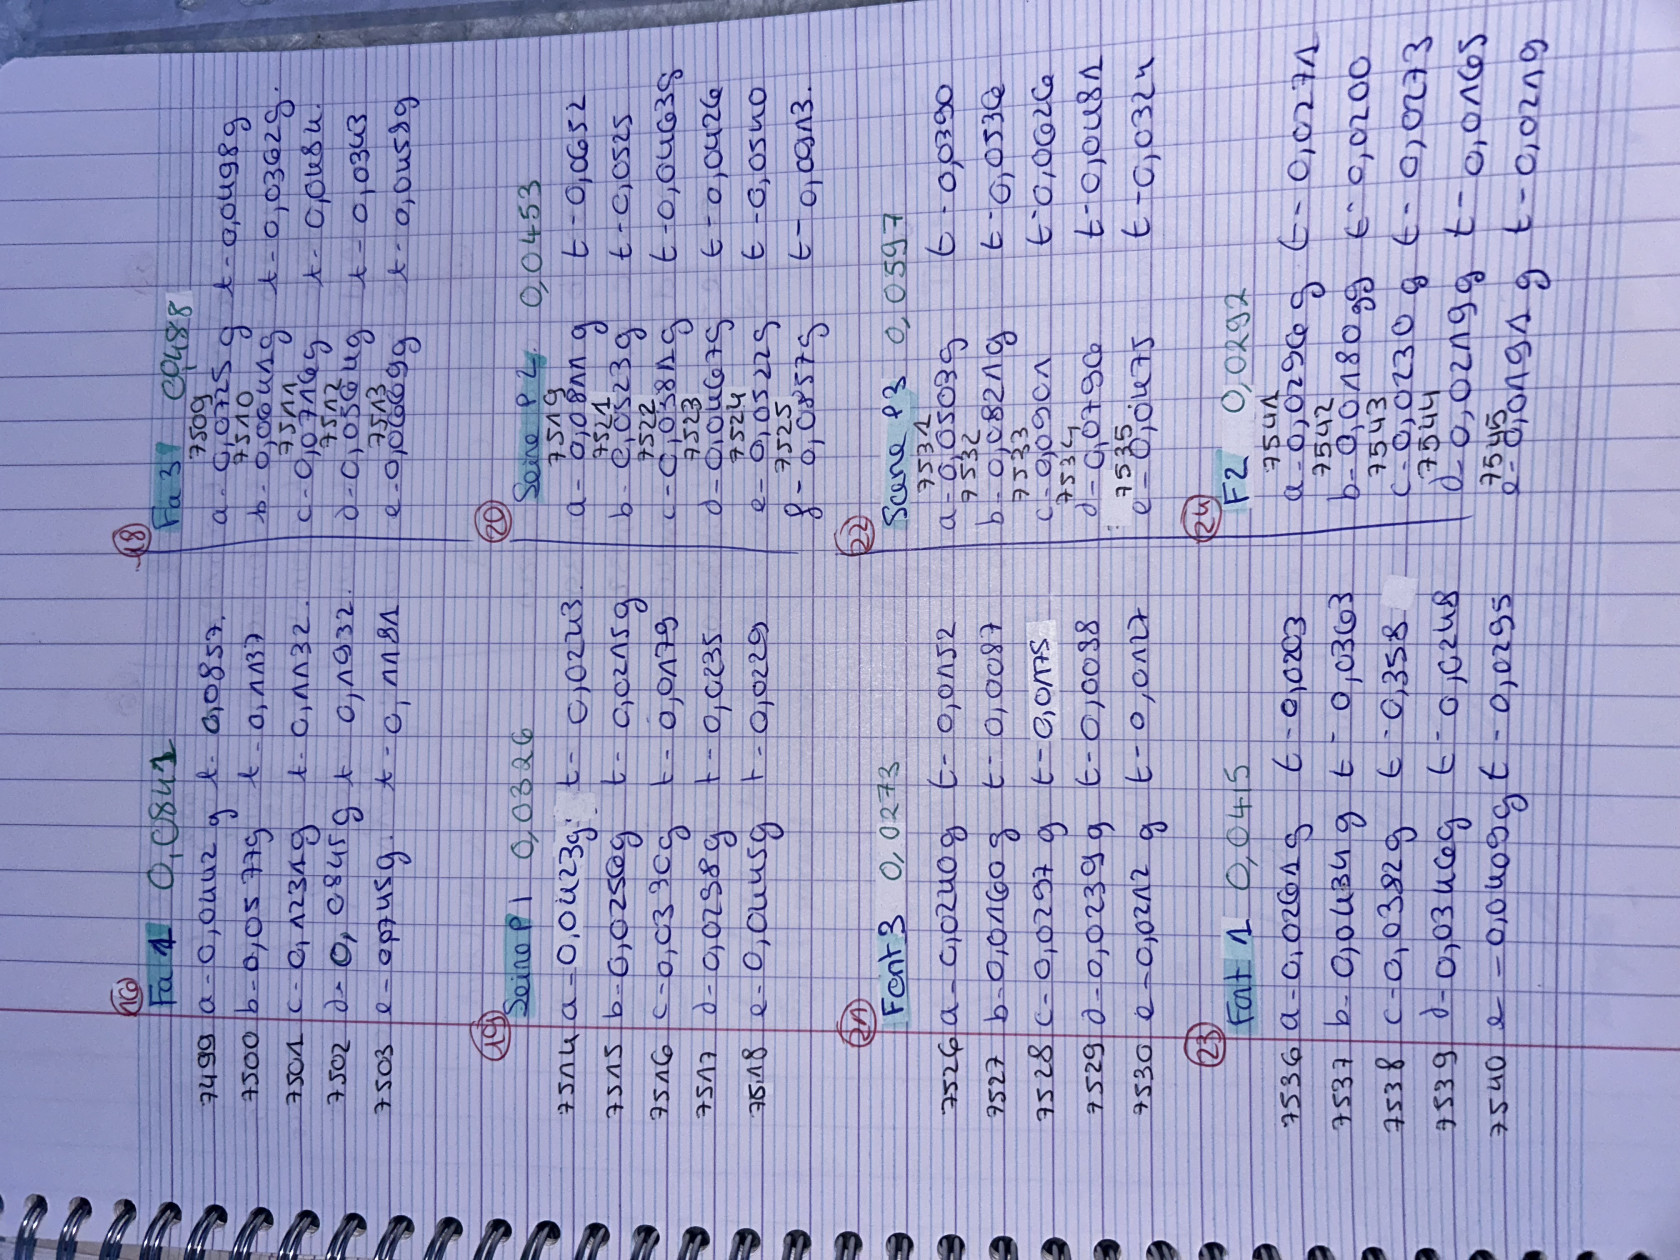 16
Fa 1 0,0841
7499 a - 0,0442 g t - 0,0857.
7500 b - 0,0577g t - 0,1137
7501 c - 0,1231g t - 0,1132.
7502 d - 0,0845g t 0,1932.
7503 e - 0,0745g. t - 0,1181
18
Fa 31 0,0488
7509
a - 0,0725 g t - 0,0498g
7510
b - 0,0641g t - 0,0362g.
7511
c - 0,0716g t - 0,0484.
7512
d - 0,0564g t - 0,0343
7513
e - 0,0669g t - 0,0458g
19
Seine P1 0,0326
7514 a - 0,0423g. t - 0,0243.
7515 b - 0,0256g t - 0,0215g
7516 c - 0,0330g t - 0,0179
7517 d - 0,0298g t - 0,0235
7518 e - 0,0445g t - 0,0229
20
Seine P4 0,0453
7519
a - 0,0811 g t - 0,0652
7521
b - 0,0523g t - 0,0525
7522
c - 0,0381g t - 0,0463g
7523
d - 0,0467g t - 0,0426
7524
e - 0,0522g t - 0,0540
7525
f - 0,0857g t - 0,0913.
21
Font 3 0,0273
7526 a - 0,0240g t - 0,0152
7527 b - 0,0160g t - 0,0087
7528 c - 0,0297 g t - 0,0175
7529 d - 0,0239 g t - 0,0098
7530 e - 0,0212 g t - 0,0127
22
Scene P3 0,0597
7531
a - 0,0503g t - 0,0390
7532
b - 0,0821g t - 0,0536
7533
c - 0,0901 t - 0,0626
7534
d - 0,0796 t - 0,0481
7535
e - 0,0475 t - 0,0324
23
Font 1 0,0415
7536 a - 0,0261g t - 0,0203
7537 b - 0,0434 g t - 0,0363
7538 c - 0,0382g t - 0,358
7539 d - 0,0346g t - 0,0248
7540 e - 0,0409g t - 0,0295
24
F2 0,0292
7541
a - 0,0296 g t - 0,0271
7542
b - 0,0180 gg t - 0,0200
7543
c - 0,0230 g t - 0,0273
7544
d - 0,0219g t - 0,0165
7545
e - 0,0191 g t - 0,0219